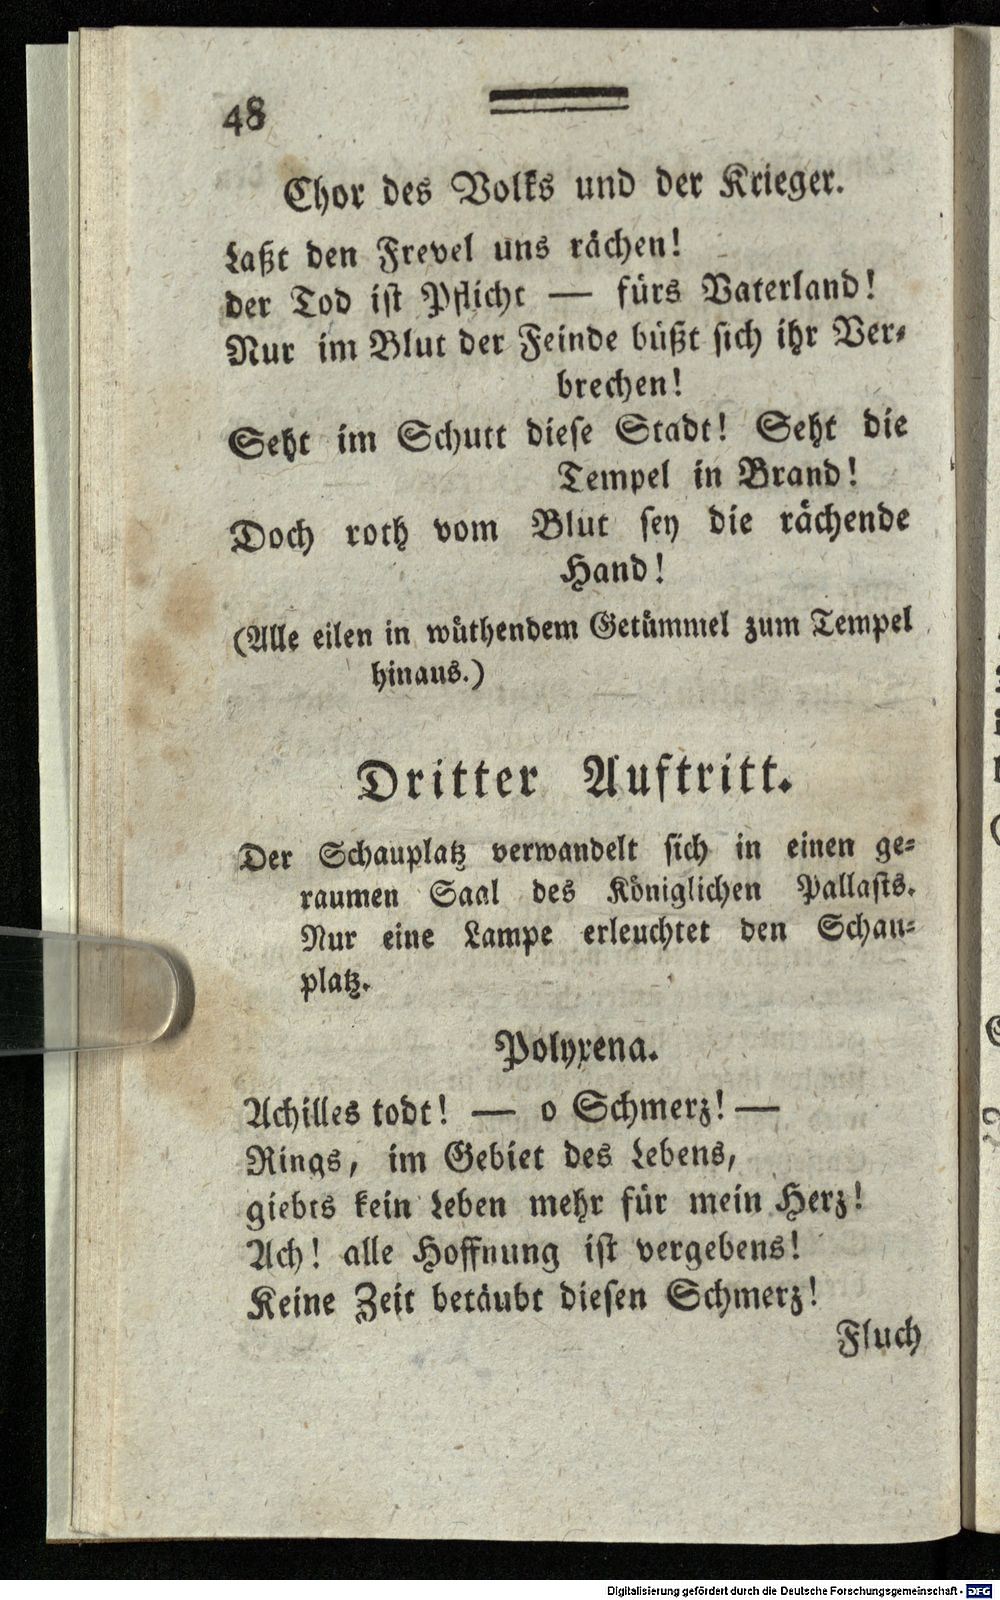 48
Chor des Volks und der Krieger.
Laßt den Frevel uns rächen!
der Tod ist Pflicht — fürs Vaterland!
Nur im Blut der Feinde büßt sich ihr Ver-
brechen!
Seht im Schutt diese Stadt! Seht die
Tempel in Brand!
Doch roth vom Blut sey die rächende
Hand!
(Alle eilen in wüthendem Getümmel zum Tempel
hinaus.)
Dritter Auftritt.
Der Schauplatz verwandelt sich in einen ge-
raumen Saal des Königlichen Pallasts.
Nur eine Lampe erleuchtet den Schau-
platz.
Polyxena.
Achilles todt! — o Schmerz! —
Rings, im Gebiet des Lebens,
giebts kein Leben mehr für mein Herz!
Ach! alle Hoffnung ist vergebens!
Keine Zeit betäubt diesen Schmerz!
Fluch
Digitalisierung gefördert durch die Deutsche Forschungsgemeinschaft - DFG